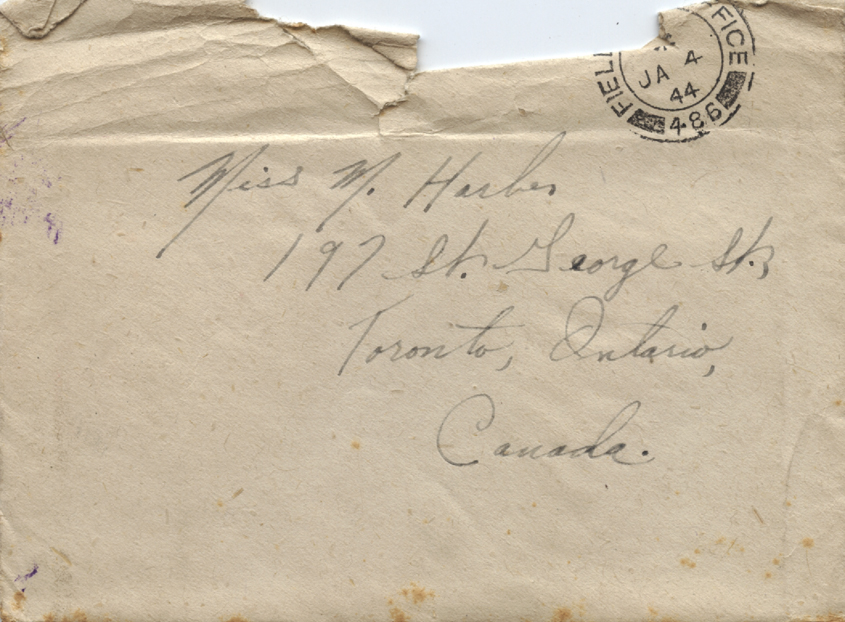 FIELD
FICE
JA 4
44
486
Miss M. Harber
197 St. George St.,
Toronto, Ontario,
Canada.